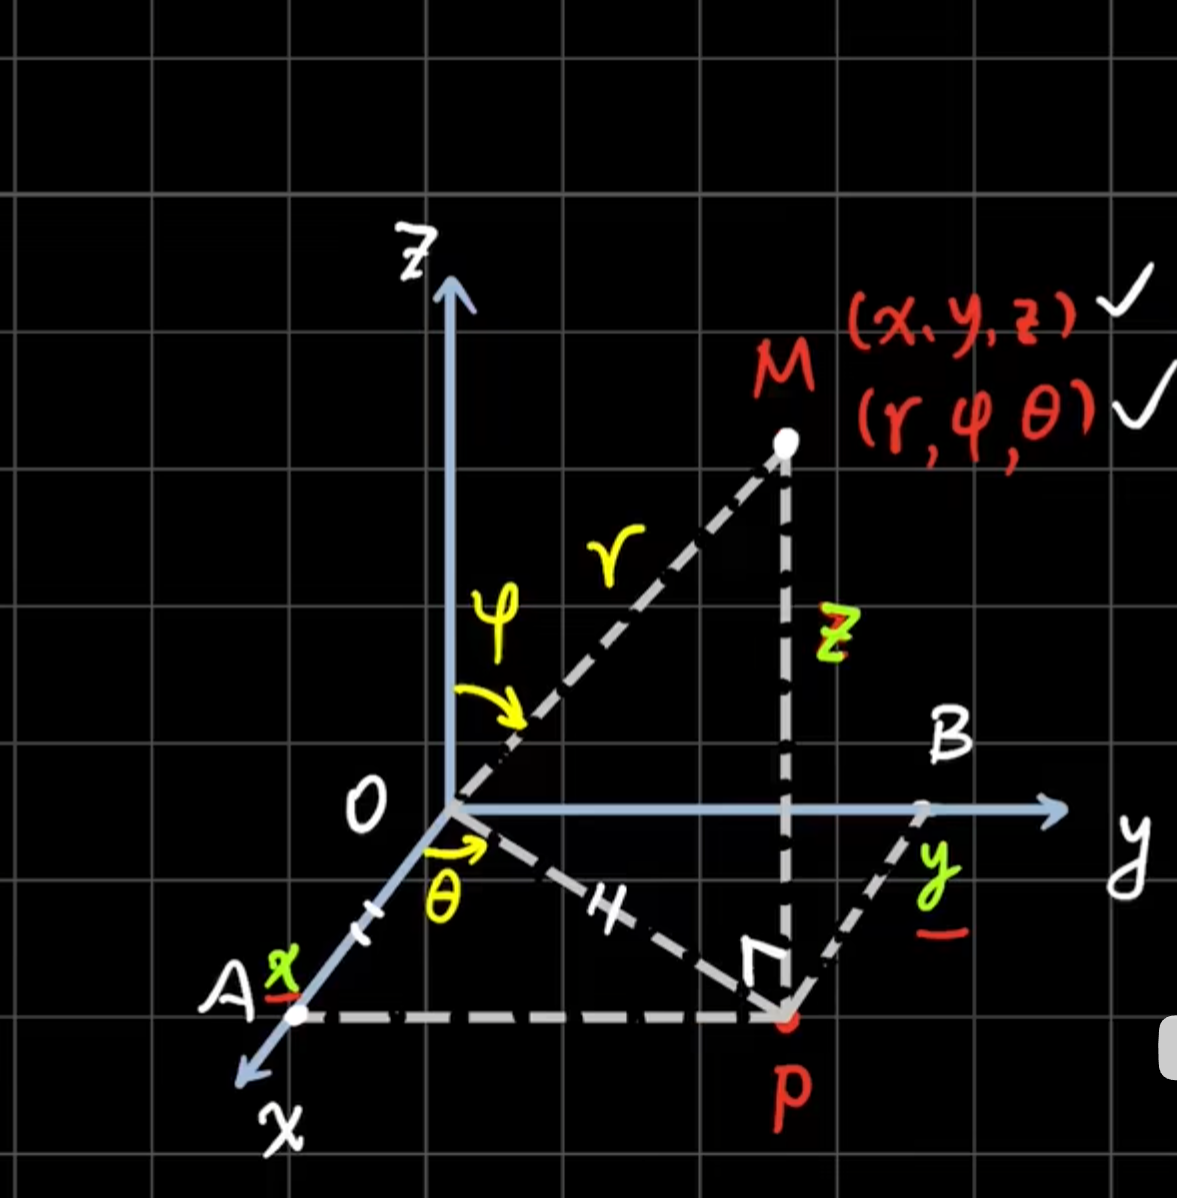 z
(x, y, z) ✓
M
(r, φ, θ) ✓
r
φ
z
B
O
y
y
θ
A x
P
x